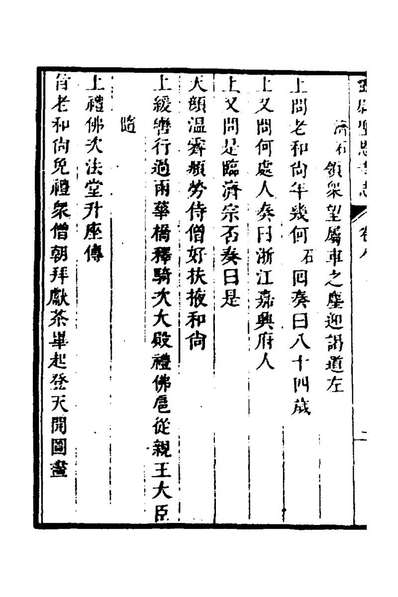 聖恩寺志 卷八
濟石領衆望屬車之塵迎謁道左
上問老和尚年幾何石回奏曰八十四歲
上又問何處人奏曰浙江嘉興府人
上又問是臨濟宗否奏曰是
天顔温霽頻勞侍僧好扶掖和尚
上緩轡行過雨華橋釋騎次大殿禮佛扈從親王大臣
隨
上禮佛次法堂升座傳
旨老和尚免禮衆僧朝拜獻茶畢起登天開圖畫